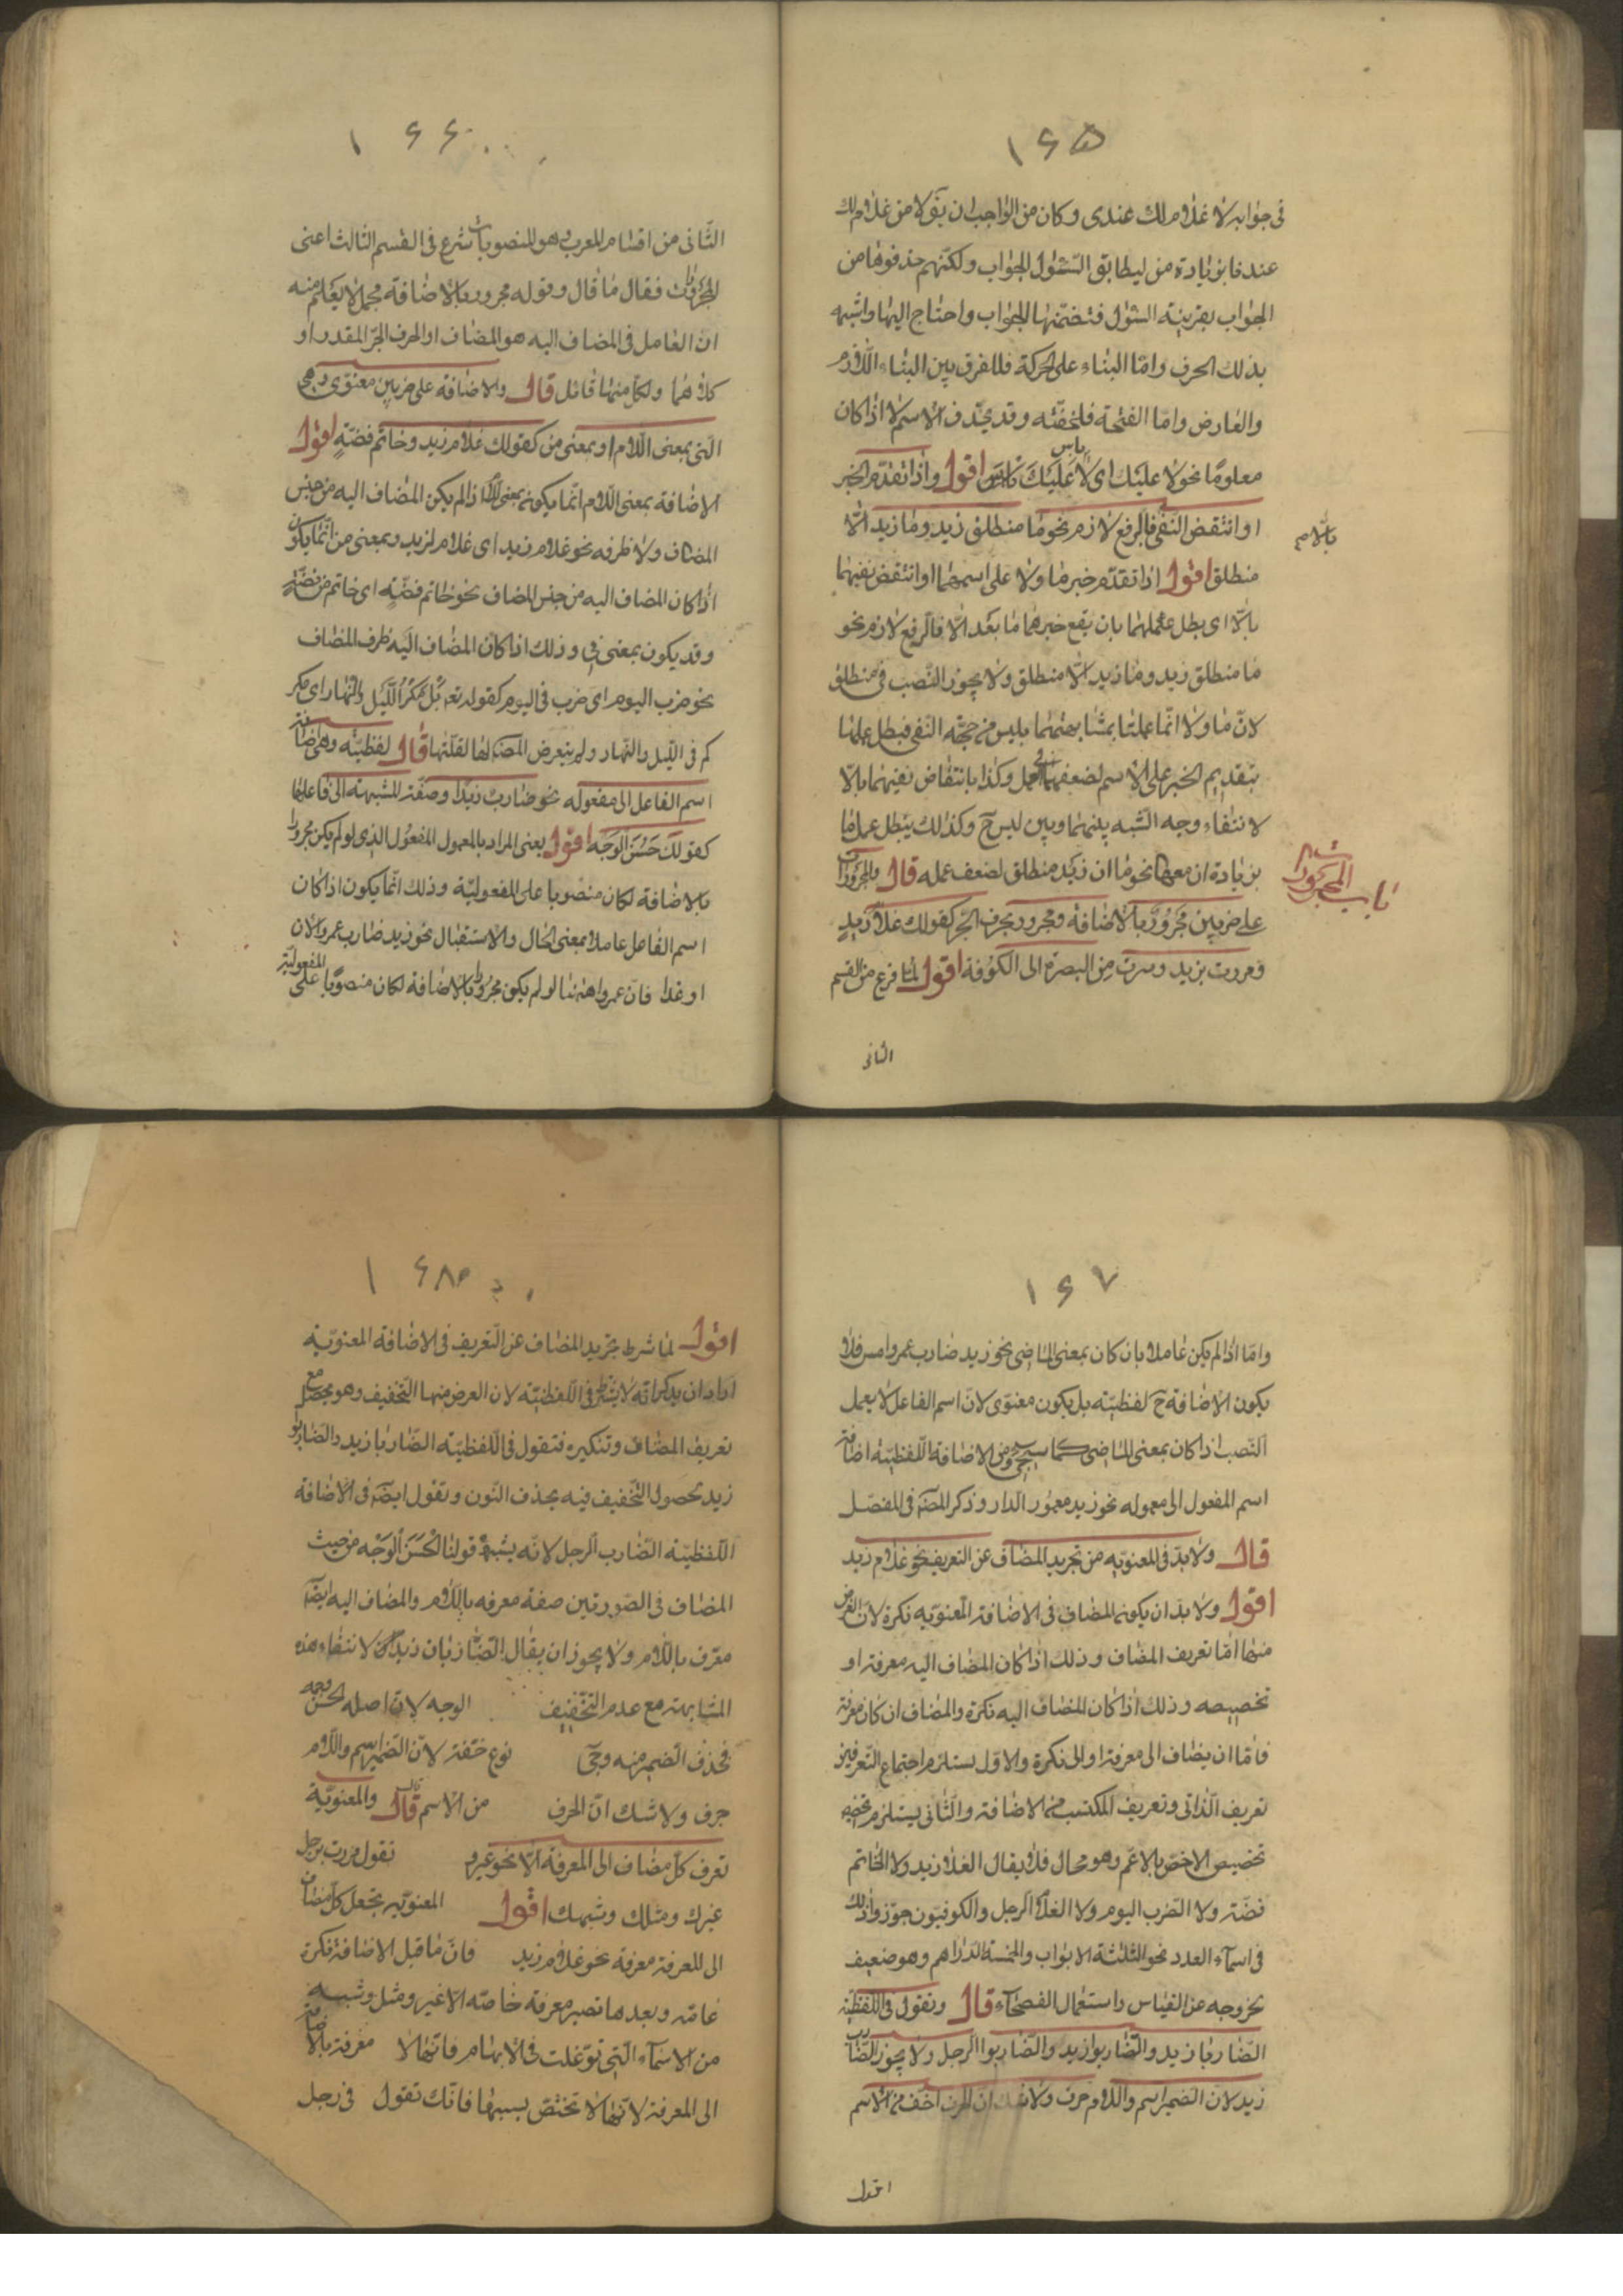 ١٦٥
فى جوابه لا غلام لك عندى وكان من الواجب ان يقولا من غلام لك
عندنا بزيادة من ليطابق السئوال الجواب ولكنهم حذفوها من
الجواب بقرينة السئوال فتضمنها الجواب واحتاج اليها واشبه
بذلك الحرف وامّا البناء على الحركة فللفرق بين البناء اللازم
والعارض وامّا الفتحة فلخفّته وقد يحذف الاسم لا اذا كان
معلومًا نحو لا عليك اى لا عَلَيْكَ بأس اقول واذا تقدّم الخبر
باس
او انتقض النفى فالرفع لازم نحو ما منطلق زيد وما زيد الّا
بالّا م
منطلق اقول اذا تقدّم خبر ما ولا على اسمهما او انتقض نفيهما
بالّا اى بطل عملهما بان يقع خبرهما ما بعد الّا فالرفع لازم نحو
ما منطلق زيد وما زيد الّا منطلق ولا يجوز النّصب فى منطلق
لانّ ما ولا انّما عملتا بمشابهتهما بليس من جهة النّفى فبطل عملهما
بتقديم الخبر على الاسم لضعفهما فى العمل وكذا بانتقاض نفيهما بالّا
لانتفاء وجه الشّبه بينهما وبين ليس ح وكذلك يبطل عمل ما
بزيادة ان معها نحو ما ان زيد منطلق لضعف عمله قال والمجرورات
باب المجرورات
على ضربين مجرورٌ بالاضافة ومجرور بحرف الجّر كقولك غلام زيدٍ
ومررت بزيد وسرت من البصرة الى الكوفة اقول لمّا فرغ من القسم
الثانى
١٦٦
الثّانى من اقسام المعرب وهو المنصوبات شرع فى القسم الثالث اعنى
المجرورات فقال ما قال وقوله مجرور بالاضافة مجملا يعلم منه
ان العامل فى المضاف اليه هو المضاف او الحرف الجرّ المقدر او
كلاهما ولكلّ منهما قائل قال والاضافة على ضربين معنوى وهى
الّتى بمعنى اللّام او بمعنى من كقولك غلام زيد وخاتم فضّةٍ اقول
الاضافة بمعنى اللّام انّما يكون بمعنى اللام اذا لم يكن المضاف اليه من جنس
المضاف ولا ظرفه نحو غلام زيد اى غلام لزيد وبمعنى من انّما يكون
اذا كان المضاف اليه من جنس المضاف نحو خاتم فضّةٍ اى خاتم من فضّةٍ
وقد يكون بمعنى فى وذلك اذا كان المضاف اليه ظرف المضاف
نحو ضرب اليوم اى ضرب فى اليوم كقوله تعه بَلْ مَكْرُ اللَّيْلِ والنّهار اى مكر
كم فى الليل والنّهار ولم يتعرض المصّ لها لقلّتها قال لفظيّة وهى اضافة
اسم الفاعل الى مفعوله نحو ضارب زيدٍ او صفة المشبهة الى فاعلها
كقولك حَسَنُ الوَجْهِ اقول يعنى المراد بالمعمول المفعول الذى لو لم يكن مجرورا
بالاضافة لكان منصوبا على المفعوليّة وذلك انّما يكون اذا كان
اسم الفاعل عاملا بمعنى الحال والاستقبال نحو زيد ضارب عمرو الان
او غدا فانّ عمروا ههنا لو لم يكن مجرورا بالاضافة لكان منصوبًا على المفعولية
١٦٧
وامّا اذا لم يكن عاملا بان كان بمعنى الماضى نحو زيد ضارب عمرو امس فلا
يكون الاضافة ح لفظيّة بل يكون معنوى لانّ اسم الفاعل لا يعمل
النّصب اذا كان بمعنى الماضى كما سيجئ ومن الاضافة اللّفظيّة اضافة
اسم المفعول الى معموله نحو زيد معمور الدار وذكر المصّ فى المفصّل
قال ولا بدّ فى المعنويّه من تجريد المضاف عن التعريف نحو غلام زيد
اقول ولا بدّ ان يكون المضاف فى الاضافة المعنويه نكرة لان الغرض
منها امّا تعريف المضاف وذلك اذا كان المضاف اليه معرفة او
تخصيصه وذلك اذا كان المضاف اليه نكرة والمضاف ان كان معرفة
فامّا ان يضاف الى معرفة او الى نكرة والاوّل يستلزم اجتماع التّعريفين
تعريف الذاتى وتعريف المكتسب من الاضافة والثّانى يستلزم
تخصيص الاخصّ بالاعّم وهو محال فلا يقال الغلام زيد ولا الخاتم
فضّة ولا الضرب اليوم ولا الغلام الرجل والكوفيّون جوّزوا ذلك
فى اسماء العدد نحو الثلثة الابواب والخمسة الدّراهم وهو ضعيف
بخروجه عن القياس واستعمال الفصحاء قال وتقول فى اللّفظيّة
الضّاربا زيد والضّاربوا زيد والضّاربوا الرجل ولا يجوز الضّارب
زيد لان الضمير اسم واللام حرف ولا شك ان الحرف اخف من الاسم
اقول
١٦٨
اقول لمّا شرط تجريد المضاف عن التّعريف فى الاضافة المعنويّة
اراد ان يذكر انّه لا يشترط فى اللّفظيّة لان الغرض منها التّخفيف وهو يحصل مع
تعريف المضاف وتنكيره فتقول فى اللّفظيّة الضّاربا زيد والضّاربوا
زيد لحصول التّخفيف فيه بحذف النّون وتقول ايضه فى الاضافة
اللّفظيّة الضّارب الرجل لانّه يشبه قولنا الحَسَنُ الوَجْه من حيث
المضاف فى الصّورتين صفة معرفه باللّام والمضاف اليه ايضه
معرّف باللّام ولا يجوز ان يقال الضّارب زيد لانتفاء هذه
المشابهة مع عدم التّخفيف الوجه لانّ اصله الحسن وجهه
فحذف الضمير منه وجئ نوع خفّة لانّ الضّمير اسم واللّام
حرف ولا شك انّ الحرف من الاسم قال والمعنويّة
تعرف كلّ مضاف الى المعرفة الّا نحو غير و تقول مررت برجل
غيرك ومثلك وشبهك اقول المعنويّه تجعل كلّ مضاف
الى المعرفة معرفة نحو غلام زيد فانّ ما قبل الاضافة نكرة
عامة وبعدها تصير معرفة خاصّه الّا غير ومثل وشبه
من الاسماء الّتى توّغلت فى الابهام فانّها لا معرفة بالاضافة
الى المعرفة لانّها لا تختصّ بسببها فانّك تقول فى رجل